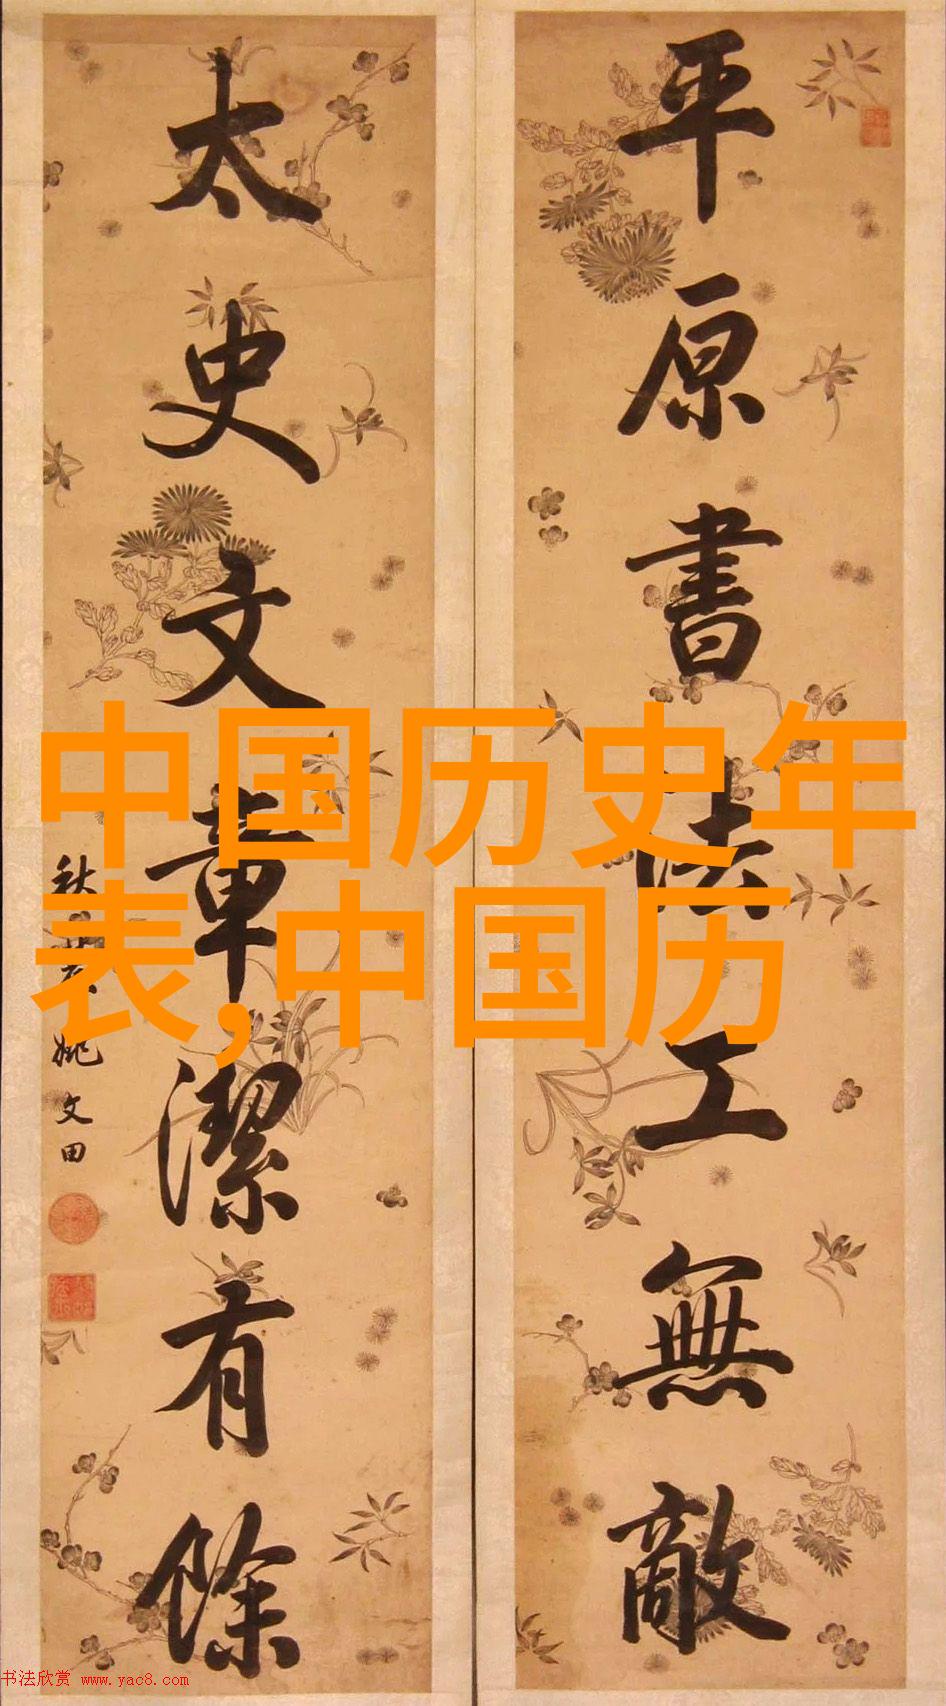 平原書法工無敵
太史文章潔有餘
姚文田
中国历史年
表,中国历
书法欣赏 www.yac8.com